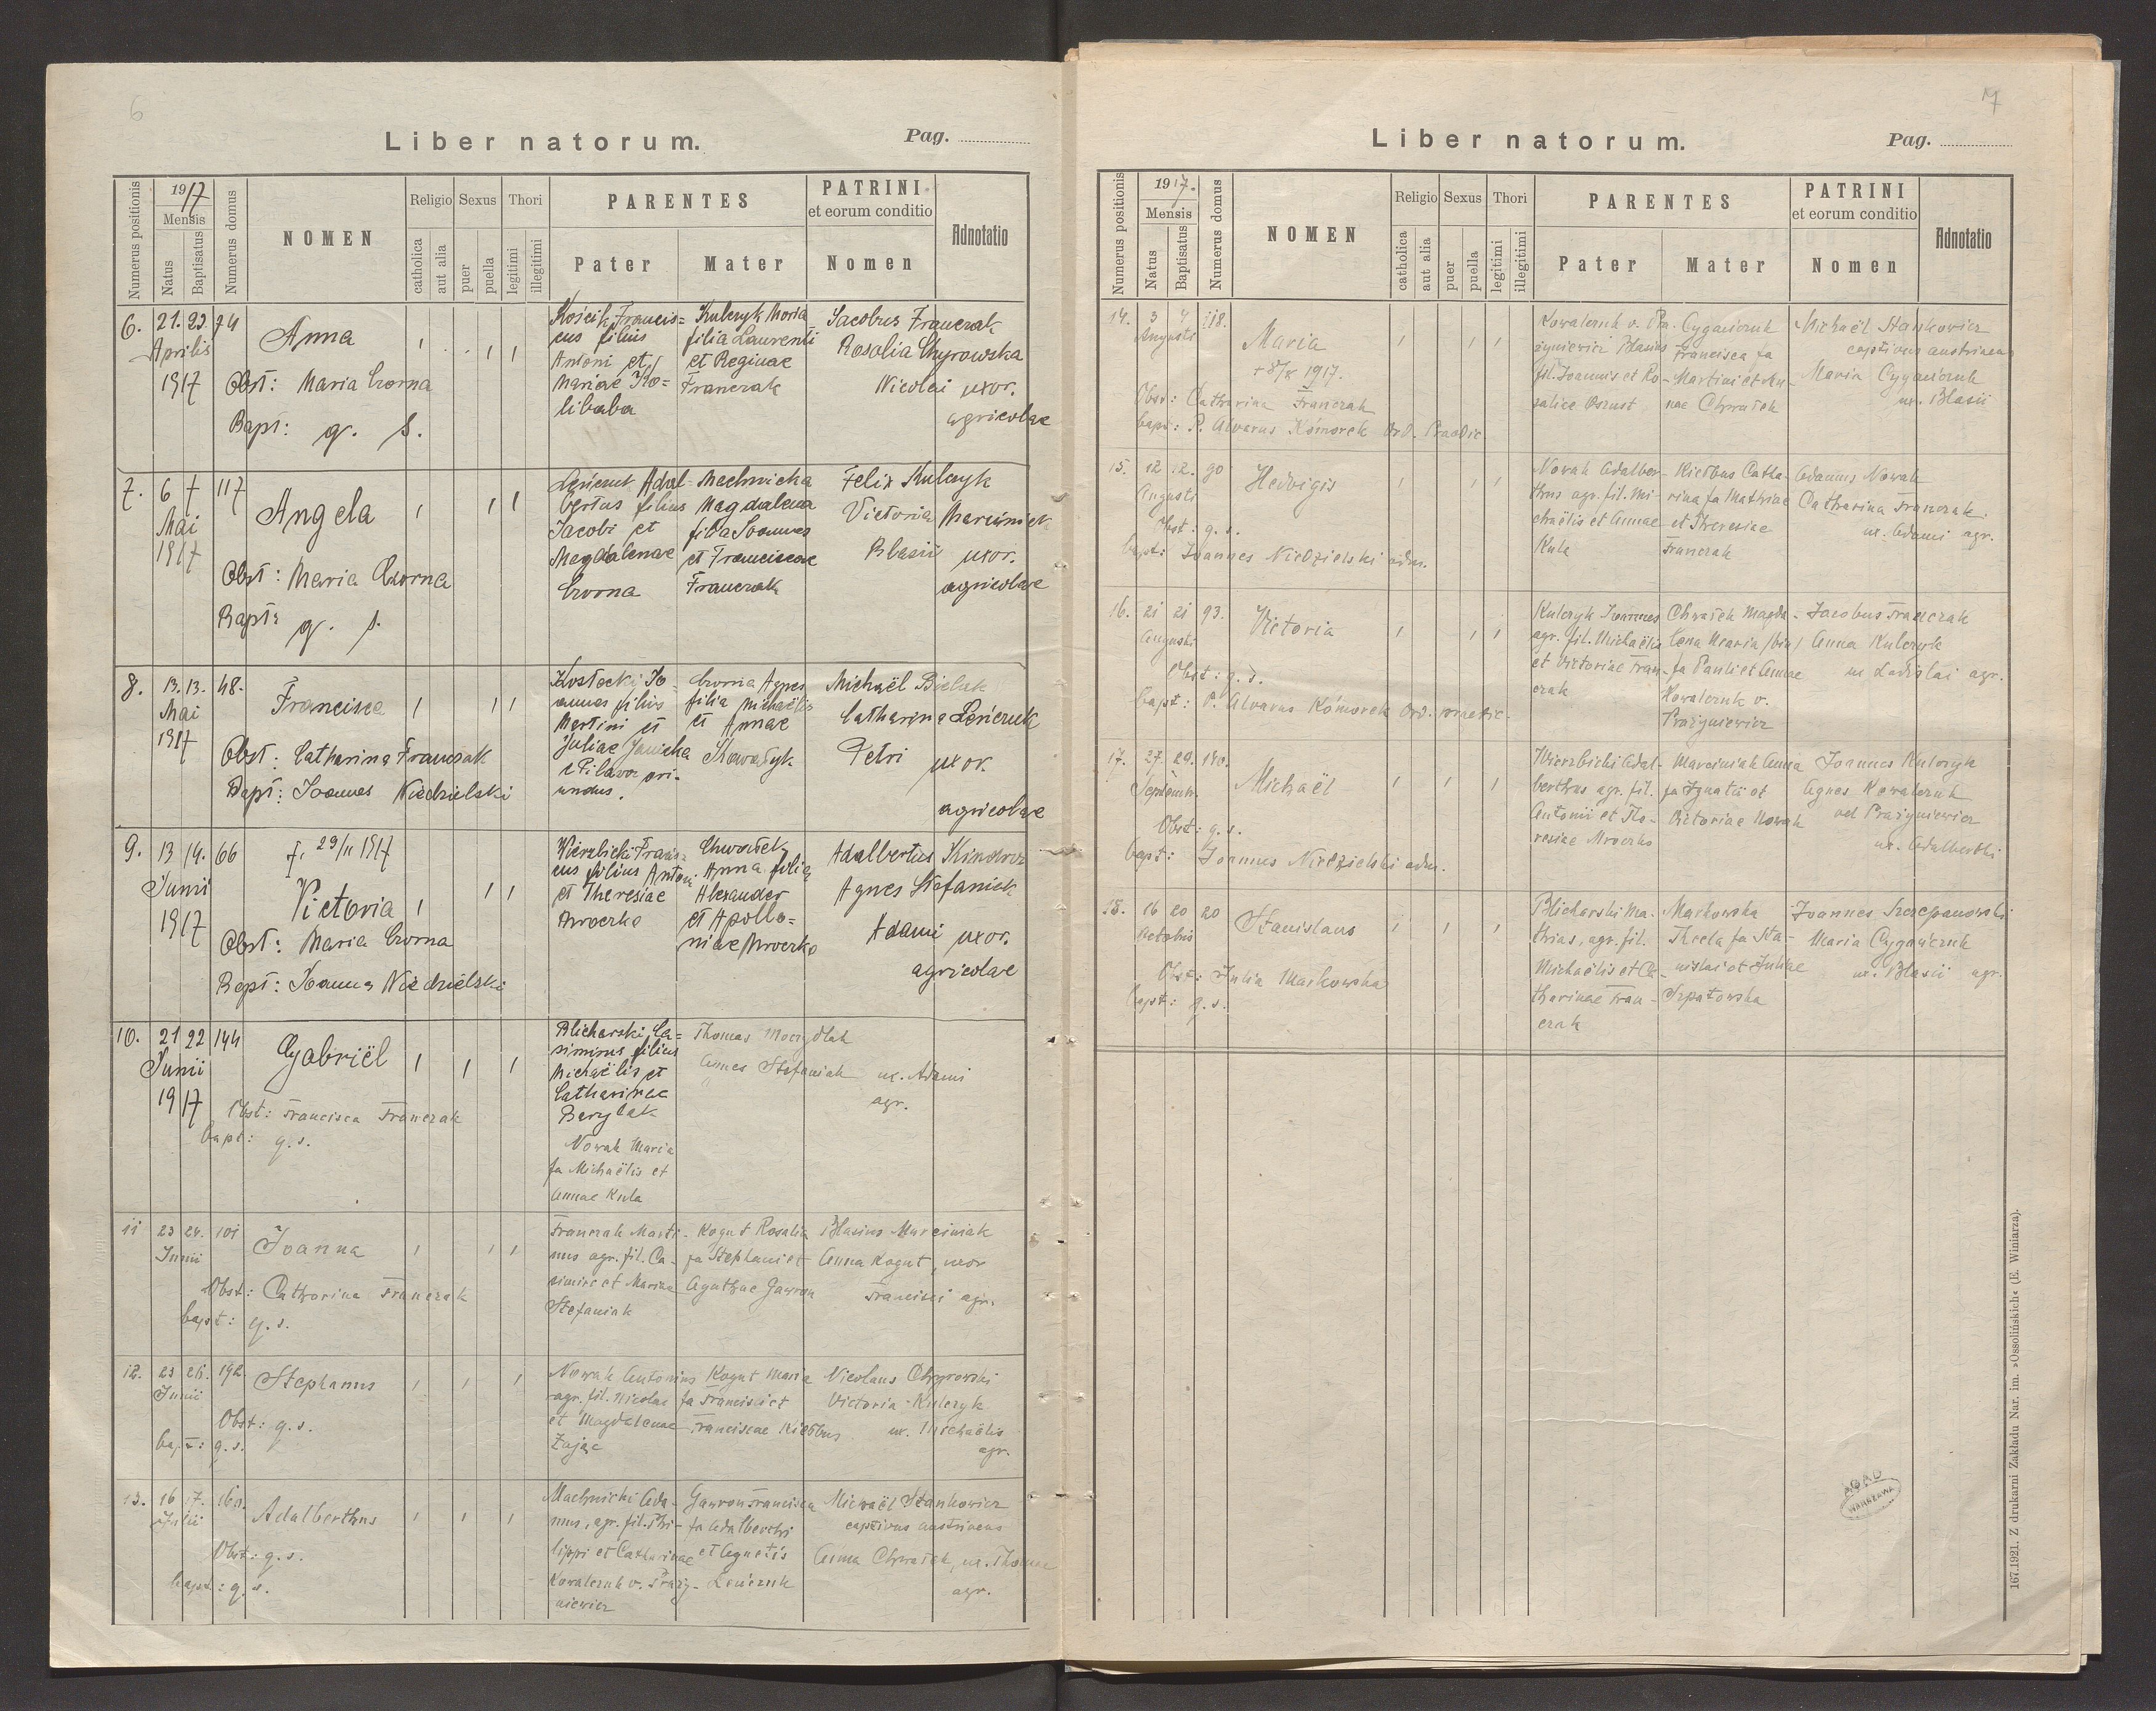 6
Liber natorum.
Pag.
Numerus positionis
1917
Mensis
Natus
Baptisatus
Numerus domus
NOMEN
Religio
catholica
aut alia
Sexus
puer
puella
Thori
legitimi
illegitimi
PARENTES
Pater
Mater
PATRINI
et eorum conditio
Nomen
Adnotatio
6. 21. 23. 74 Anna
Aprilis
1917
Obst: Maria Czorna
Bapt: q. s.
Kościk Francis=
cus filius
Antoni et
Mariae Ko=
libaba
Kulczyk Maria
filia Laurenti
et Reginae
Franczak
Jacobus Franczak
Rosalia Chyrowska
Nicolai uxor.
agricolae
7. 6 7 117 Angela
Mai
1917
Obst: Maria Czorna
Bapt: q. s.
Leńczuk Adal-
bertus filius
Jacobi et
Magdalenae
Czorna
Machnicka
Magdalena
filia Joannes
et Franciscae
Franczak
Felix Kulczyk
Victoria Marciniak
Blasii uxor.
agricolae
8. 13. 13. 48. Francisca
Mai
1917
Obst: Catharina Franczak
Bapt: Joannes Niedzielski
Kostecki Jo=
annes filius
Martini et
Juliae Janicka
e Pilawa ori-
undus.
Czorna Agnes
filia Michaëlis
et Annae
Kowalyk
Michaël Bielak
Catharina Leńczuk
Petri uxor.
agricolae
9. 13 14. 66 †. 29/11 1917
Junii
1917
Victoria
Obst: Maria Czorna
Bapt: Joannes Niedzielski
Wierzbicki Francis=
cus filius Antoni
et Theresiae
Mroczko
Chwałek
Anna filia
Alexander
et Apollo=
niae Mroczko
Adalbertus Kindrac
Agnes Stefaniak
Adami uxor.
agricolae
10. 21 22 144 Gabriël
Junii
1917
Obst: Francisca Franczak
bapt: q. s.
Blicharski Ca=
simirus filius
Michaëlis et
Catharinae
Berylak
Nowak Maria
fa Michaëlis et
Annae Kula
Thomas Moczydłak
Agnes Stefaniak ux. Adami
agr.
11 23 24. 101 Joanna
Junii
Obst: Catharina Franczak
bapt: q. s.
Franczak Marti-
nus agr. fil. Ca-
simiri et Mariae
Stefaniak
Kogut Rosalia
fa Stephani et
Agathae Gawron
Blasius Marciniak
Anna Kogut, uxor
Francisci agr.
12. 23 26. 192. Stephanus
Junii
Obst: q. s.
bapt: q. s.
Nowak Antonius
agr. fil. Nicolae
et Magdalenae
Zając
Kogut Maria
fa Francisci et
Franciscae Kiełbus
Nicolaus Chyrowski
Victoria Kulczyk
ux. Michaëlis
agr.
13. 16 17. Adalberthus
Julii
Obst: q. s.
bapt: q. s.
Machnicki Ada-
mus, agr. fil. Phi-
lippi et Catharinae
Kowalczuk v. Praży-
niewicz
Gawron Francisca
fa Adalberthi
et Agnetis
Leńczuk
Michaël Stankowicz
captivus austriacus
Anna Chwałek, ux. Thomae
agr.
7
Liber natorum.
Pag.
Numerus positionis
1917.
Mensis
Natus
Baptisatus
Numerus domus
NOMEN
Religio
catholica
aut alia
Sexus
puer
puella
Thori
legitimi
illegitimi
PARENTES
Pater
Mater
PATRINI
et eorum conditio
Nomen
Adnotatio
14. 3 4 118. Maria
Augusti
1917.
Obst: Catharina Franczak
bapt: P. Alvarus Komorek Ord. Praedic.
Kowalczuk v. Pra-
żyniewicz Blasius
fil. Joannis et Ro-
saliae Oszust
Cygańczuk
Francisca fa
Martini et An-
nae Chwałek
Michaël Stankowicz
captivus austriacus
Maria Cygańczuk
ux. Blasii
15. 12 12. 90 Hedvigis
Augusti
Obst: q. s.
bapt: Joannes Niedzielski adm.
Nowak Adalber-
thus agr. fil. Mi-
chaëlis et Annae
Kula
Kiełbus Catha-
rina fa Mathiae
et Theresiae
Franczak
Adamus Nowak
Catharina Franczak
ux. Adami agr.
16. 21 21 93. Victoria
Augusti
Obst: q. s.
bapt: P. Alvarus Komorek Ord. praedic.
Kulczyk Joannes
agr. fil. Michaëlis
et Victoriae Fran-
czak
Chwałek Magda-
lena Maria /bin/
fa Pauli et Annae
Kowalczuk v.
Prażyniewicz
Jacobus Franczak
Anna Kulczyk
ux Ladislai agr.
17. 27. 29. 140. Michaël
Septembr.
Obst: q. s.
bapt: Joannes Niedzielski adm.
Wierzbicki Adal-
berthus agr. fil.
Antonii et The-
resiae Mroczko
Marciniak Anna
fa Ignatii et
Victoriae Nowak
Joannes Kulczyk
Agnes Kowalczuk
vel Prażyniewicz
ux. Adalberthi
18. 16 20 20 Stanislaus
Octobris
Obst: Julia Markowska
bapt: q. s.
Blicharski Ma-
thias, agr. fil.
Michaëlis et Ca-
tharinae Fran-
czak
Markowska
Thecla fa Sta-
nislai et Juliae
Szpatowska
Joannes Szczepanowski
Maria Cygańczuk
ux. Blasii agr.
AGAD
WARSZAWA
167.1921. Z drukarni Zakładu Nar. im. »Ossolińskich« (E. Winiarza).